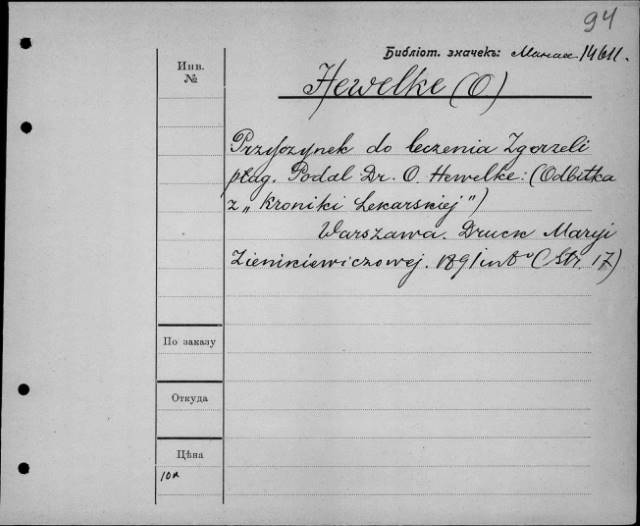 94
Библіот. значекъ: 14611.
Инв.
№
Hewelke (O)
Przyczynek do leczenia Zgorzeli
płag. Podal Dr. O. Hewelke: (Odbitka
z „Kroniki Lekarskiej")
Warszawa. Druck Maryi
Zienkiewiczowej. 1891 in 8° (Str. 17)
По заказу
Откуда
Цѣна